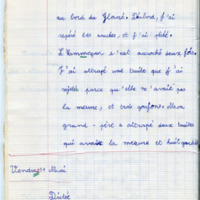 au bord du Gland. D'abord, j'ai
repéré les endes, et j'ai pêché.
L'hameçon s'est accroché deux fois.
J'ai attrapé une truite que j'ai
rejeté parce qu'elle n'avait pas
la mesure, et trois goujons. Mon
grand-père a attrapé deux truites
qui avaient la mesure et huit goujons
Vendredi Mai
Dictée